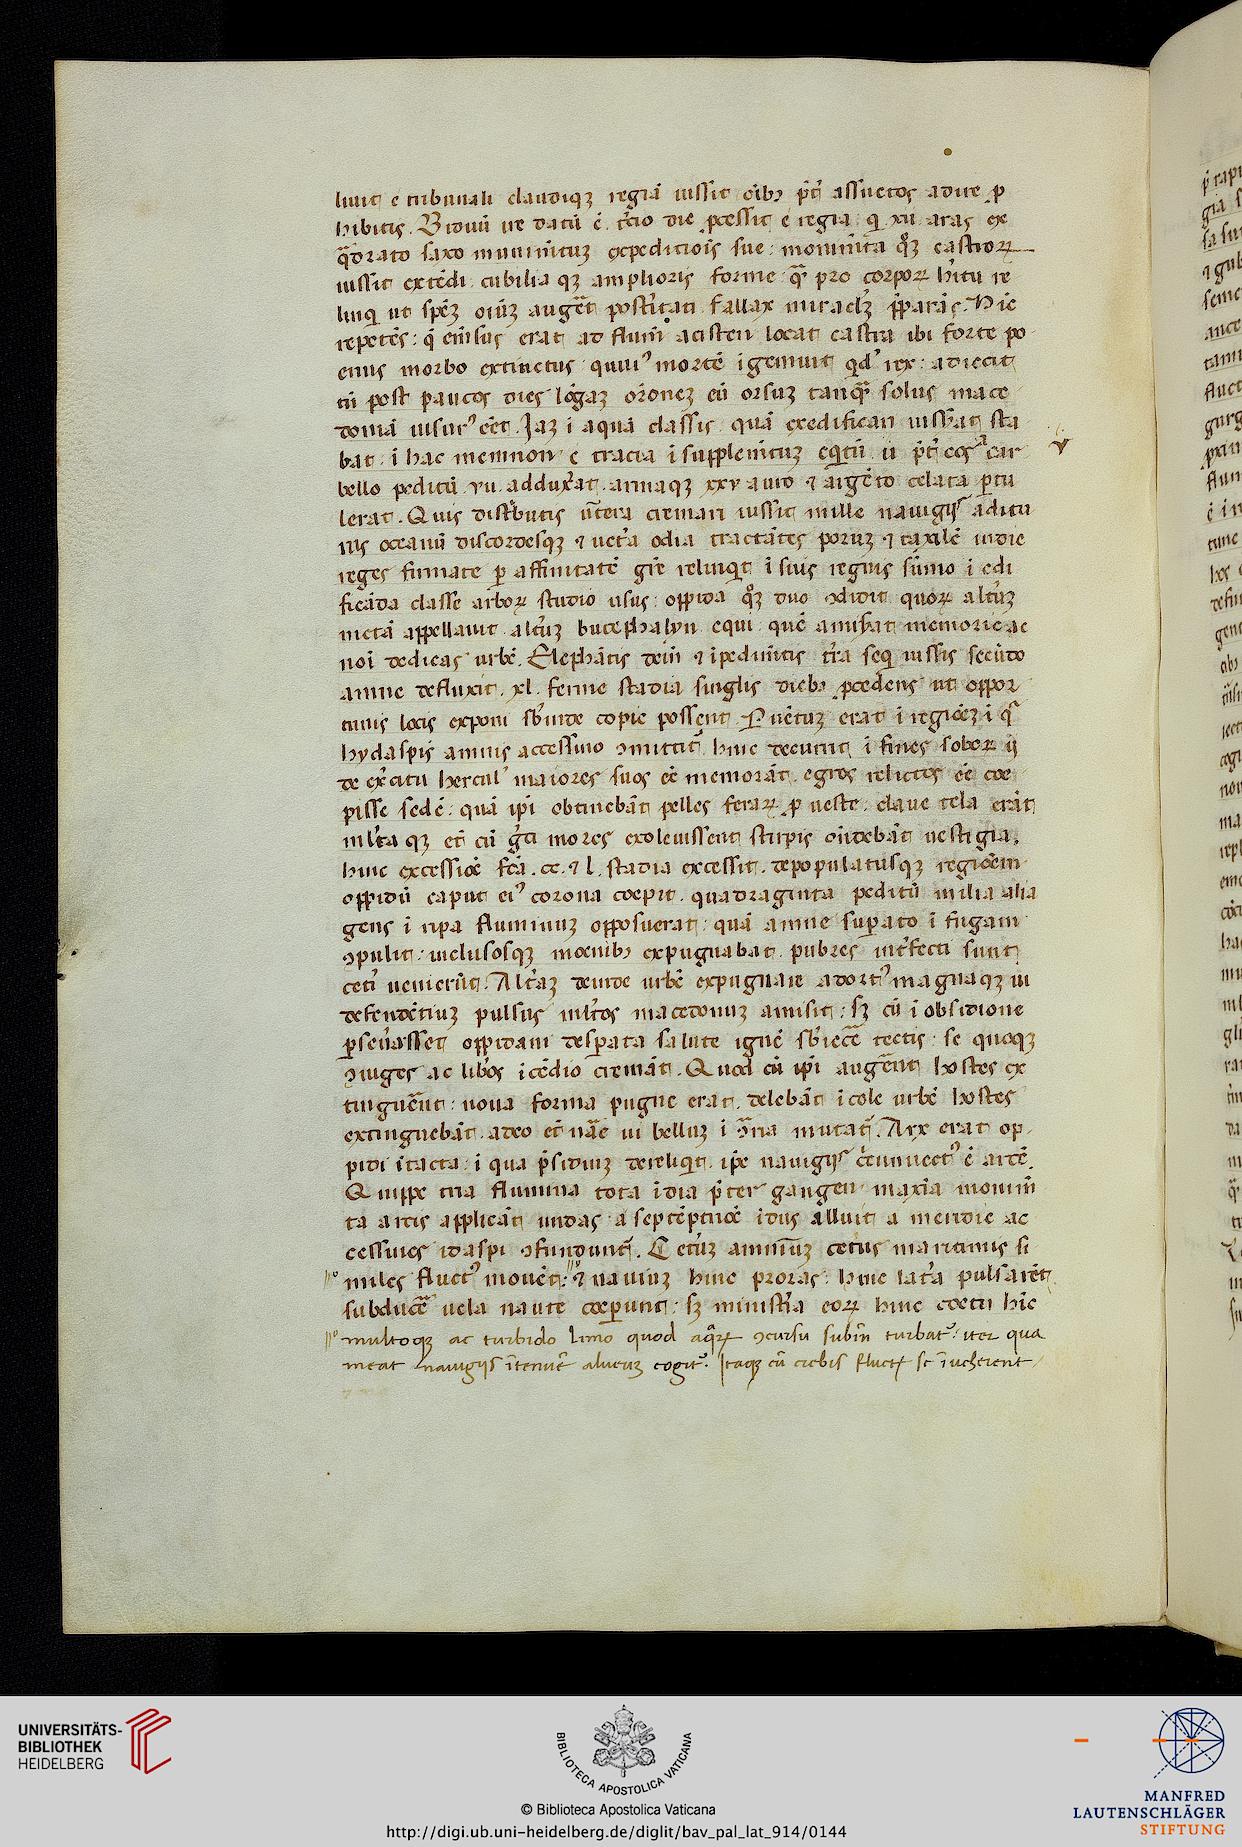 liuit e tribunali claudiqz regiā iussit oībꝫ p̄t̄ assuetos adire ꝓ
hibitis. Biduū ire datū ē. t̄cio die ꝓcessit e regia. q̨ xii aras ex
q̄drato saxo munim̄tuz expedicōis sue. monim̄ta qꝫ castroꝝ
iussit extēdi cubilia qz amplioris forme q̄ꝫ pro corpoꝝ h̄itu re
linq̨ ut spēz oīuz auger̄t posteritati fallax miraclꝫ p̄parās. Hic
repetēs: q̄ em̄sus erat ad flum̄ acisten locat castra ibi forte po
enus morbo extinctus cuiuꝰ mortē īgemuit q̨dꝰ rex: adiecit
tn̄ post paucos dies lōgaz or̄onez eū orsuz tanq̄ꝫ solus mace
doniā uisurꝰ eēt. Jaz ī aqua classis quā exedificari iusserat sta
bat. ī hac memnon e tracia ī supplem̄tuz eq̨tū u p̄t̄ eos ar
bello peditū vii adduxerat. armaqz xxv auro ⁊ argēto celata ꝑtu
lerat. Quis distributis uet̄era cremari iussit mille nauigijs aditu
rus oceanū discordesqz ⁊ uet̄a odia tractātes poruz ⁊ taxilē indie
reges firmate ꝑ affinitatē gr̄e relinq̨t ī suis regnis sūmo ī edi
ficāda classe arboꝝ studio usus: oppida qꝫ duo ꝯdidit quoꝝ altuꝫ
niceā appellauit. altuꝫ bucephalyn equi quē amiserat memorie ac
noī dedicās urbē. Elephātis dein̄ ⁊ īpedimentis t̄ra seq̨ iussis secūdo
amne defluxit. xl. ferme stadia singlis diebꝫ ꝓcedens ut oppor
tunis locis exponi sb̄inde copie possent. Puētuz erat ī regiōez ī q̄
hydaspis amnis accessino ꝯmittit̄ hinc decurrit ī fines soboꝝ ij
de ex̄citu hercul' maiores suos eē memorāt. egros relictos eē coe
pisse sedē: quā ipi obtinebāt pelles feraꝝ ꝓ ueste. claue tela erāt
ml̄ta qz et cū gr̄ci mores exoleuissent stirpis on̄debāt uestigia.
hinc excessiōē fc̄ā. cc. ⁊ l. stadia excessit. depopulatusqz regiōem
oppidū caput eiꝰ corona coepit. quadraginta peditū milia alia
gens ī ripa fluminuz opposuerat: quā amne suꝑato ī fugam
ꝯpulit: inclusosqz moenibꝫ expugnabat. pubres int̄fecti sunt
cet̄i uenierūt. Alt̄az deinde urbē expugnare adortꝰ magnaqz ui
defendētiuz pulsus ml̄tos macedonuz amisit: sꝫ cū ī obsidione
ꝑseuerasset oppidani desꝑata salute ignē sb̄iecer̄e tectis: se quoqz
ꝯiuges ac lib̄os īcēdio cremāt. Quod cū ipi augerēt hostes ex
tinguer̄ent: noua forma pugne erat. delebāt īcole urbē hostes
extinguebāt. adeo et̄ nāe ui belluz ī ꝯt̄ria mutat̄. Arx erat op
pidi ītacta: ī qua p̄sidiuz dereliq̨t. ipe nauigijs c̄cumuectꝰ ē arcē.
Quippe tria flumina tota īdia p̄ter gangen maxīa monim̄
ta arcis applicāt undas. a septēptriōē īdus alluit a meridie ac
cessines idaspi ꝯfundunt̄. Cetuꝫ amniuꝫ coetus maritimis si
miles fluctꝰ mouēt: ⁊ nauiuz hinc proras: hinc lat̄a pulsarēt
subducer̄e uela naute coeperunt: sꝫ minist̄ia eoꝝ hinc coetu hīc
multoqꝫ ac turbido limo quod aq̄ꝝ ꝯcursu subīn turbatꝰ: iter qua
meat nauigijs ītenuē alueuz cogitꝰ. Itaqꝫ cū crebris fluctꝰ se īucherent
UNIVERSITÄTS-
BIBLIOTHEK
HEIDELBERG
BIBLIOTECA APOSTOLICA VATICANA
© Biblioteca Apostolica Vaticana
http://digi.ub.uni-heidelberg.de/diglit/bav_pal_lat_914/0144
MANFRED
LAUTENSCHLÄGER
STIFTUNG